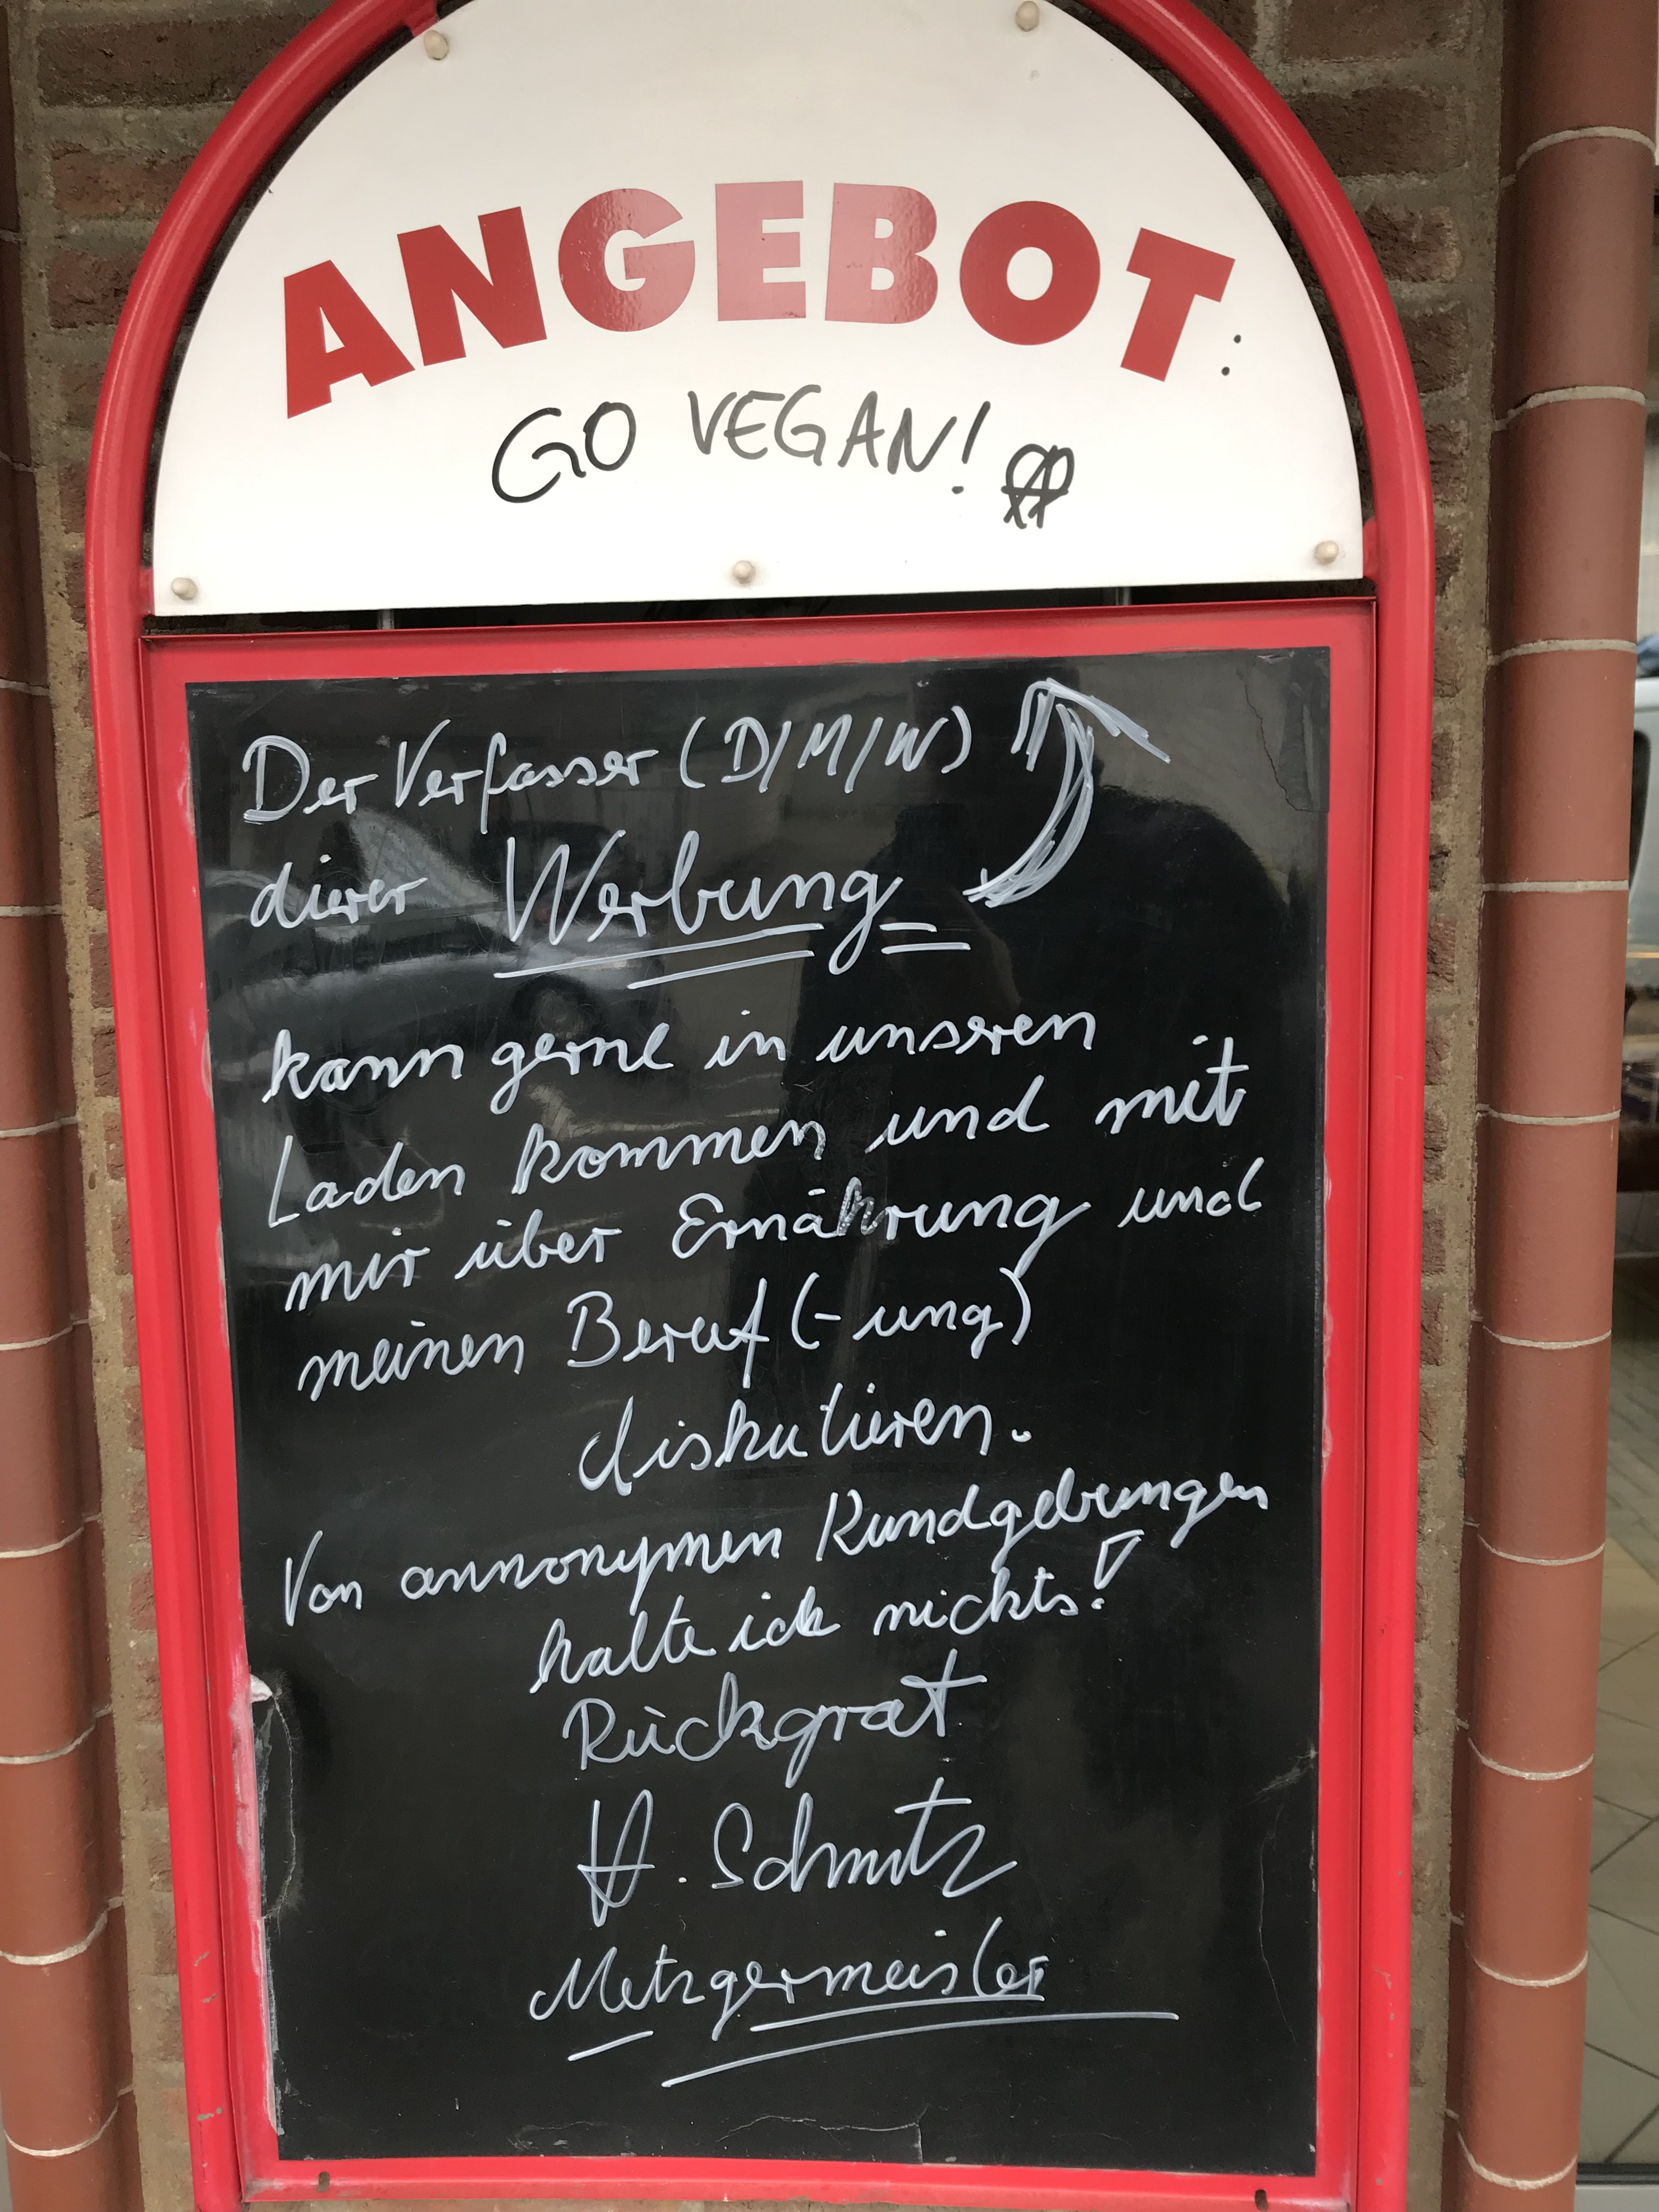 ANGEBOT:
GO VEGAN!
Der Verfasser (D/M/W)
dieser Werbung
kann gerne in unseren
Laden kommen und mit
mir über Ernährung und
meinen Beruf (-ung)
diskutieren.
Von annonymen Kundgebungen
halte ich nichts!
Rückgrat
H. Schmitz
Metzgermeister